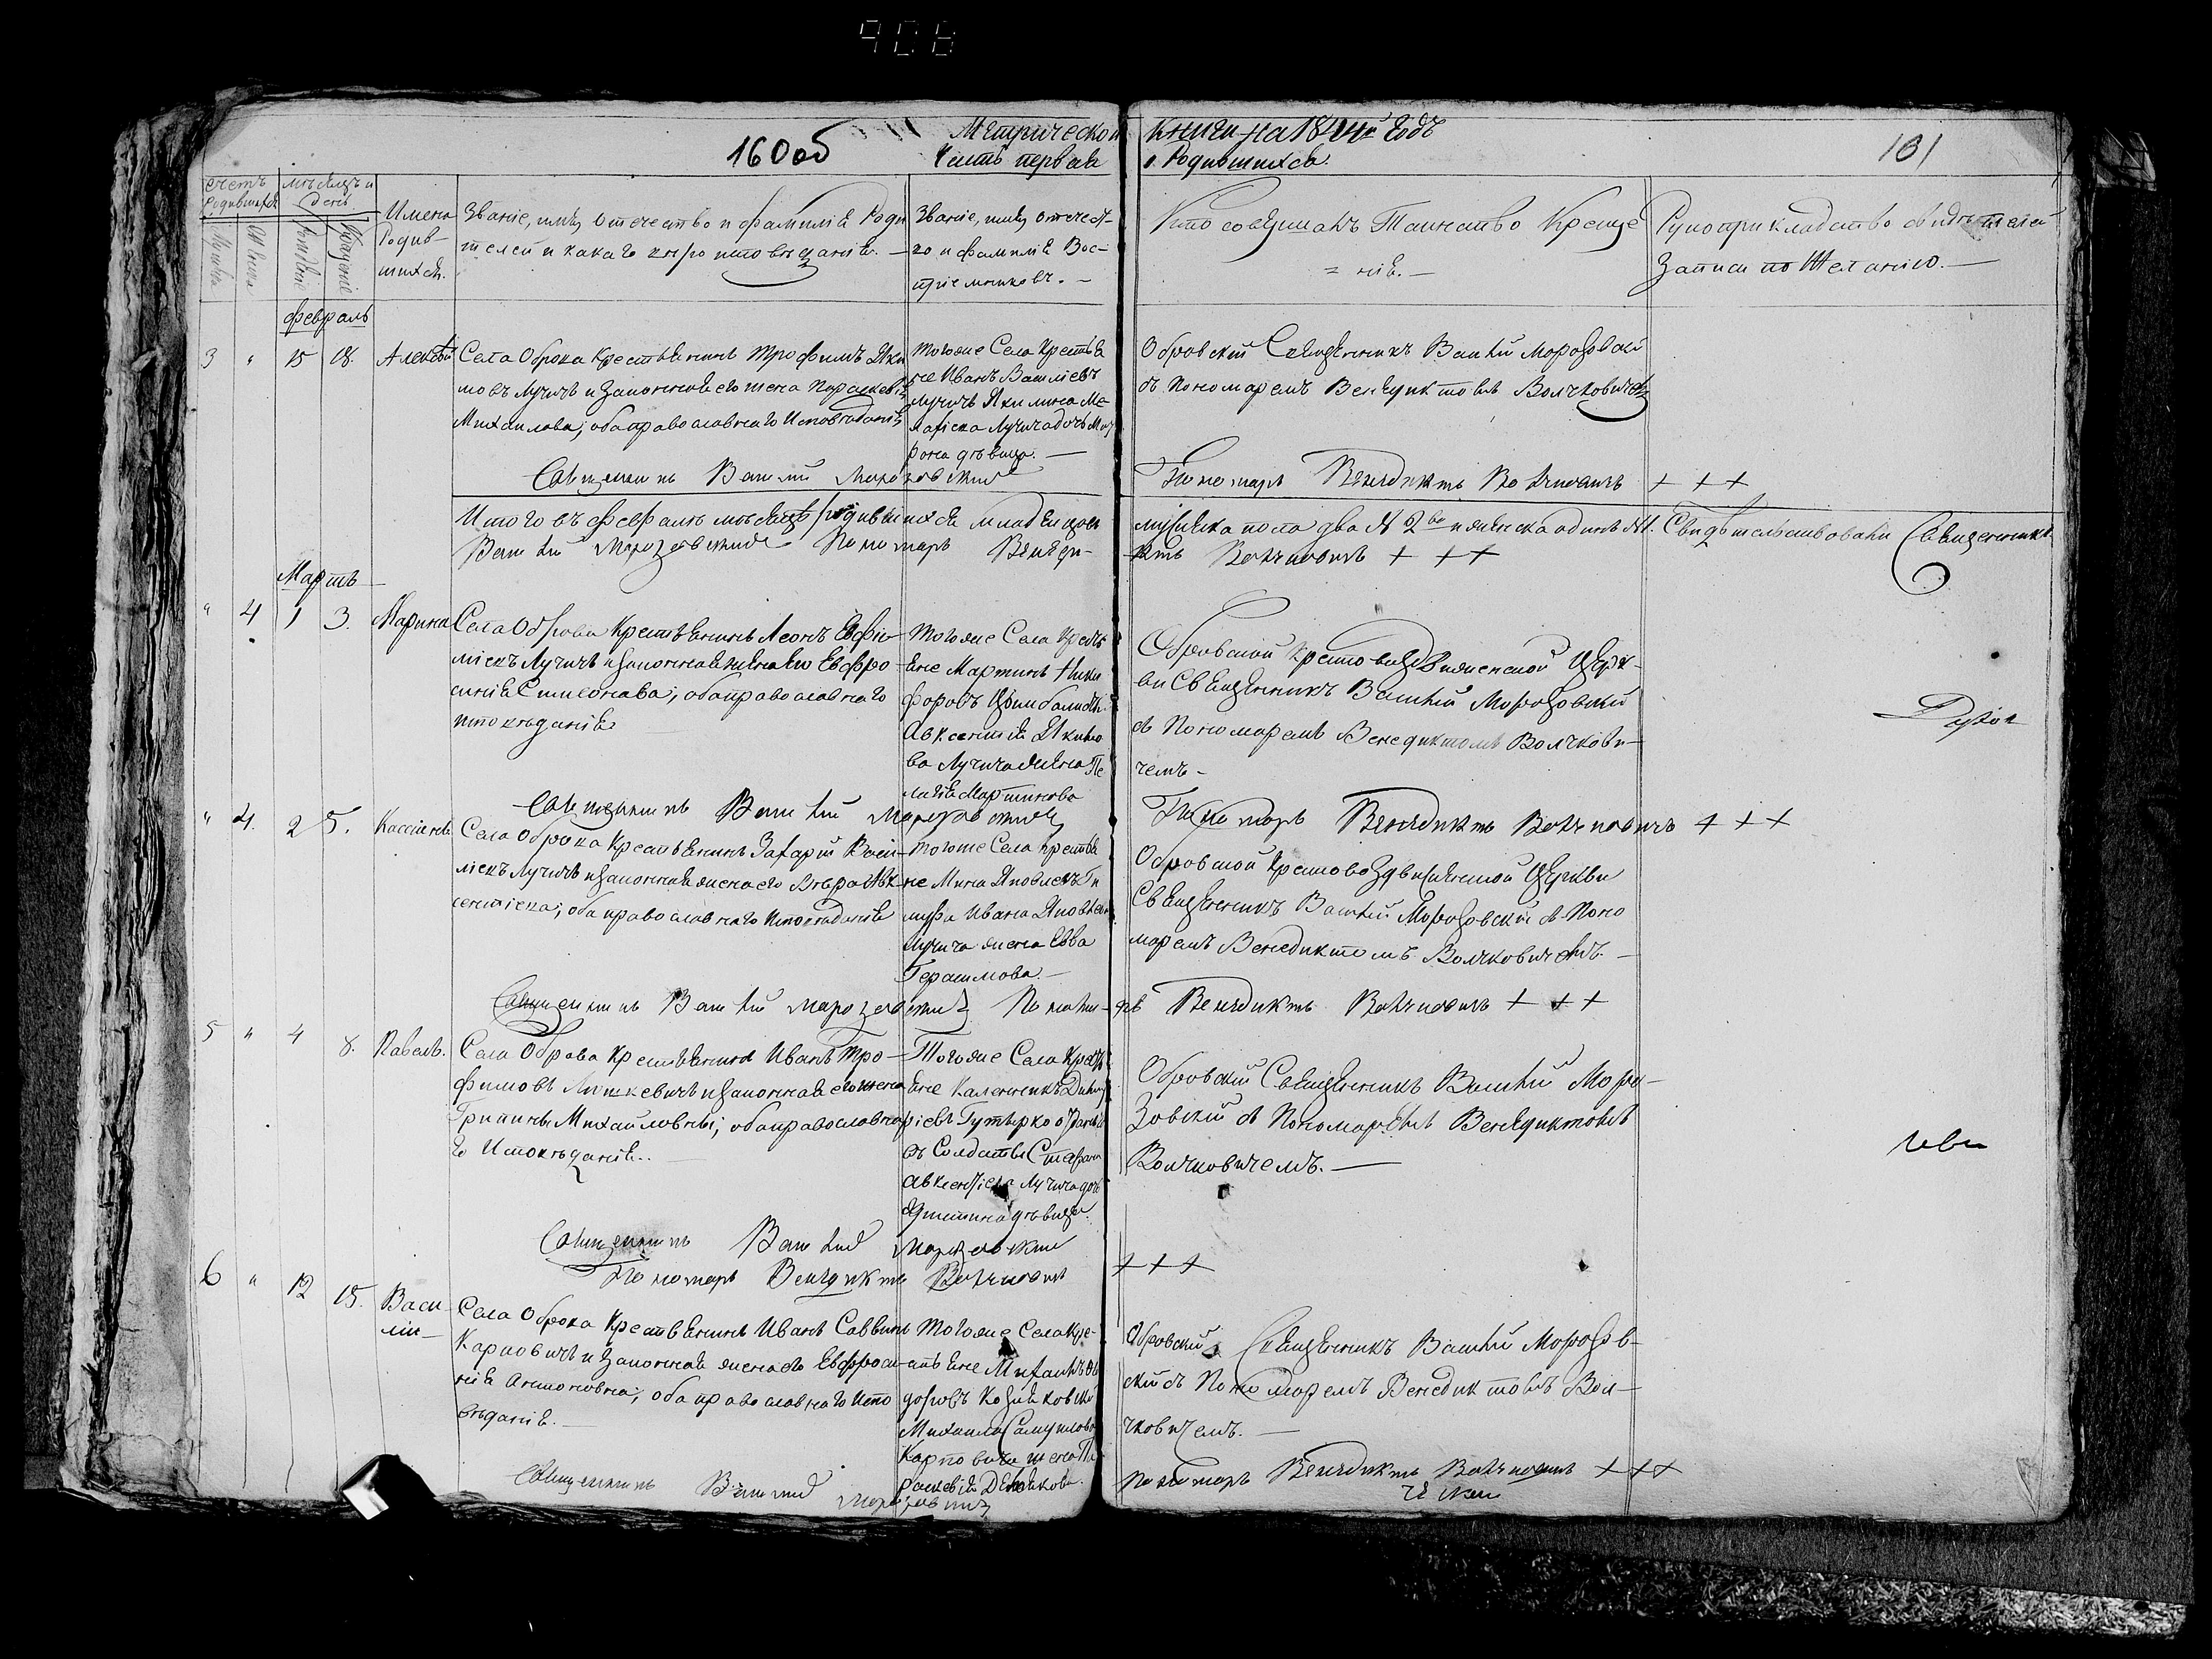 908
160об
Метрической
Книги на 1844й годъ
101
Часть первая
о Родившихся.
счетъ
Родившихся
мѣсяцъ и
день
Имена
Родив-
шихся.
Званіе, имя, отечество и фамилія Роди
телей и какаго вѣроисповѣданія.
Званіе, имя, отечест-
во и фамилія Вос-
пріемниковъ. —
Кто совершалъ Таинство Креще
= нія. —
Рукоприкладство свидѣтелей
Записи по Желанію. —
Рожденія
Крещенія
февраль
3 " 15 18. Алексѣй
Села Оброва Крестьянинъ Трофимъ Яки
мовъ Лучичъ и Законная его жена Параскевія
Михаилова; оба православнаго Исповѣданія
тогоже Села Крестья
не Иванъ Василіевъ
Лучичъ Якилина Ме
Лучича дочь
рона дѣвица. —
Обровскій Священникъ Василій Морозовскій
съ Пономаремъ Венедиктомъ Волчковичемъ
Священникъ Василій Морозовскій
Пономарь Венедиктъ Волчковичъ + + +
Итого въ февралѣ мѣсяцѣ родившихся младенцовъ
мужеска пола два № 2 и женска одинъ №1. Свидѣтельствовали Священникъ
Василій Морозовскій Пономарь Венеди-
ктъ Волчковичъ + + +
Мартъ
" 4 1 3. Марина
Села Оброва Крестьянинъ Леонъ Евфи-
міевъ Лучичъ и Законная жена его Евфро-
синія Симеонова; оба православнаго
исповѣданія
Тогоже Села Крестья
яне Мартинъ Ники
форовъ Цымбалистъ
Авксентія Якимо
ва Лучича жена Пе
лагія Мартинова
Обровской Крестовоздвиженской Церк-
ви Священникъ Василій Морозовскій
съ Пономаремъ Венедиктомъ Волчкови-
чемъ -
Священникъ Василій Морозовскій
Пономарь Венедиктъ Волчковичъ + + +
" 4. 2 5. Кассіянъ
Села Оброва Крестьянинъ Захарій Васи-
ліевъ Лучичъ и Законная жена его Вѣра Авк-
сентіева; оба православнаго Исповѣданія
Тогоже Села Крестья
не Мина Яковлевъ
Ивана Яковлева
Лучича жена Евва
Герасимова. —
Обровской Крестовоздвиженской Церкви
Священникъ Василій Морозовскій съ Поно
маремъ Венедиктомъ Волчковичемъ. —
Священникъ Василій Морозовскій Пономарь
Венедиктъ Волчковичъ + + +
5 " 4 8. Павелъ.
Села Оброва Крестьянинъ Иванъ Тро-
фимовъ и Законная его жена
Михайловны; оба православна
го Исповѣданія.
Тогоже Села Кресть
яне Каленникъ
ріевъ
въ Солдаты Стефана
Авксентіева Лучича дочь
дѣвица.
Обровскій Священникъ Василій Моро-
зовскій съ Пономаремъ Венедиктомъ
Волчковичемъ. —
Священникъ Василій Морозовскій
Пономарь Венедиктъ Волчковичъ + + +
6 " 12 15. Васи-
лій
Села Оброва Крестьянинъ Иванъ Саввинъ
Карповичъ и Законная жена его Евфроси-
нія Антоновна; оба православнаго Испо
вѣданія. —
Тогоже Села Кре-
стьяне Михаилъ Ѳе
доровъ
Михаила Самуилова
Карповича жена Па
раскевія
Обровскій Священникъ Василій Морозов-
скій съ Пономаремъ Венедиктомъ Вол-
чковичемъ. —
Священникъ Василій Морозовскій
Пономарь Венедиктъ Волчковичъ + + +